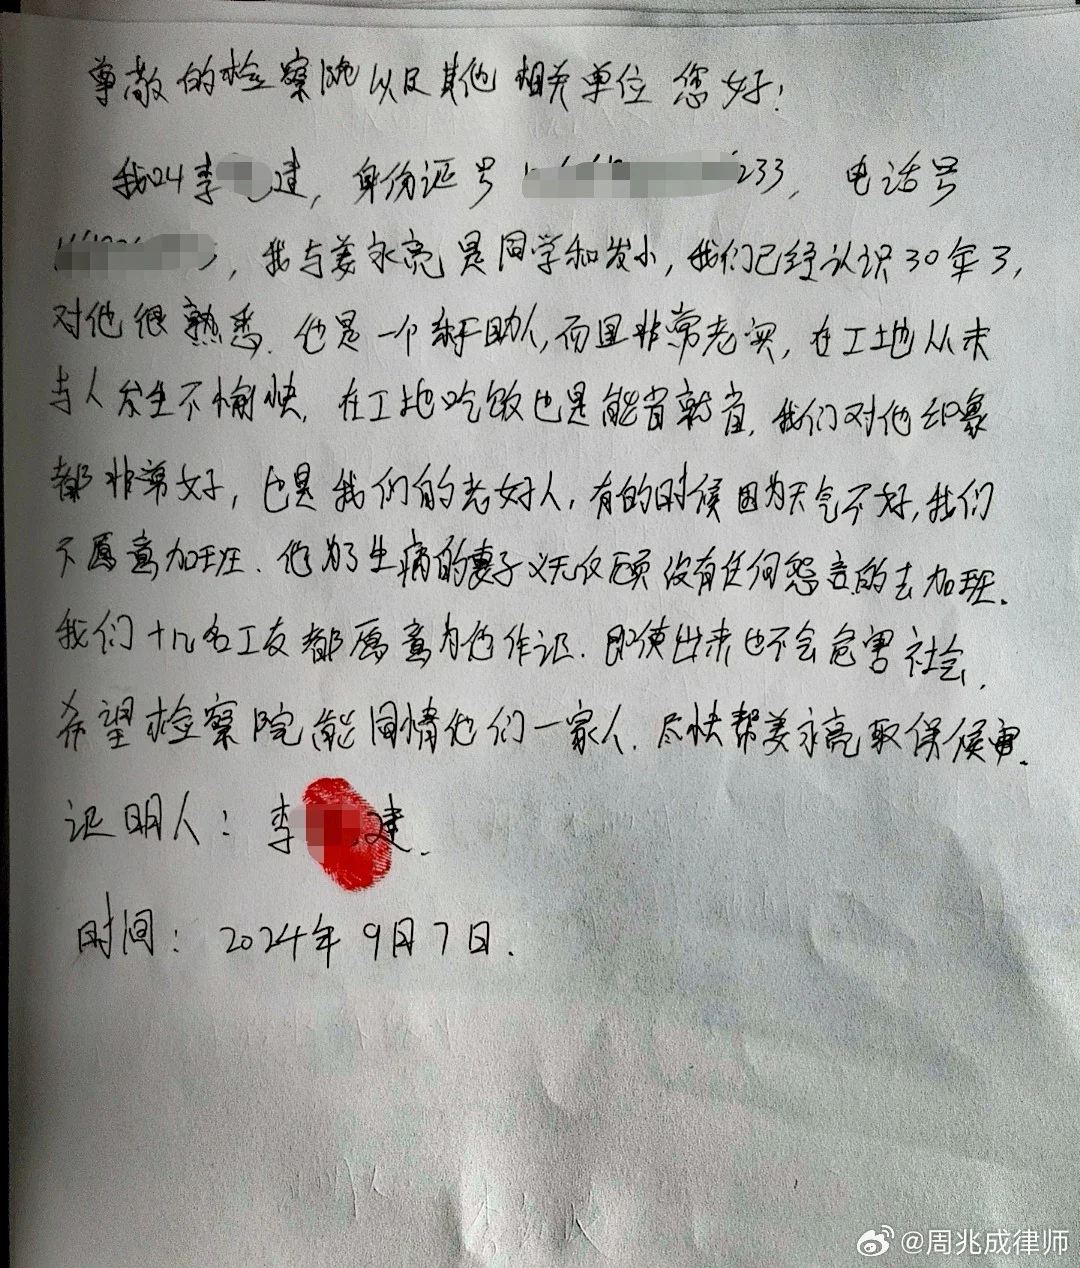 尊敬的检察院以及其他相关单位 您好!
我叫李建,身份证号233,电话号
,我与姜永亮是同学和发小,我们已经认识30年了,
对他很熟悉.他是一个乐于助人,而且非常老实,在工地从未
与人发生不愉快,在工地吃饭也是能省就省,我们对他印象
都非常好,也是我们的老好人,有的时候因为天气不好,我们
不愿意加班.他为了生病的妻子义无反顾没有任何怨言的去加班.
我们十几名工友都愿意为他作证.即使出来也不会危害社会,
希望检察院能同情他们一家人.尽快帮姜永亮取保候审.
证明人:李建.
时间:2024年9月7日.
@周兆成律师